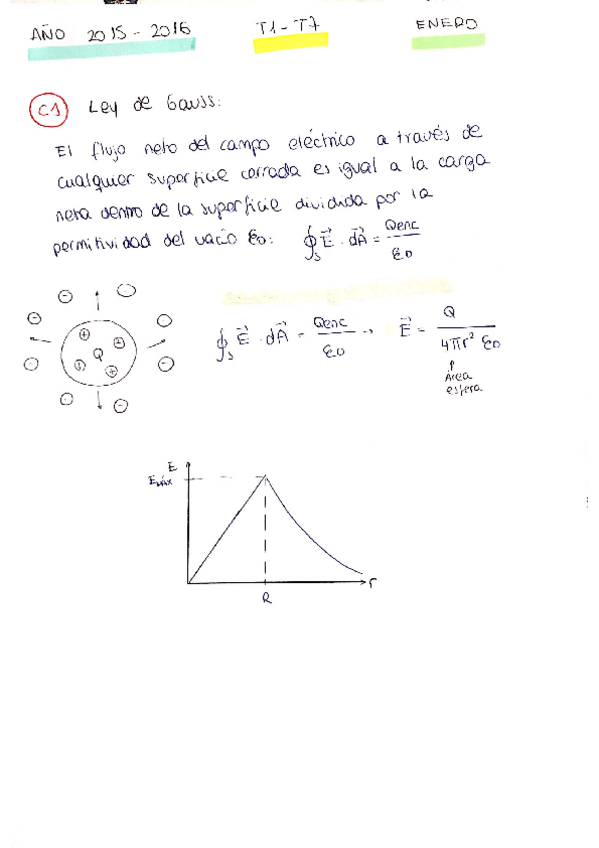 AÑO 2015 - 2016 T1 - T7 ENERO
C1 Ley de Gauss:
El flujo neto del campo eléctrico a través de
cualquier superficie cerrada es igual a la carga
neta dentro de la superficie dividida por la
permitividad del vacío ε0: ∮s E⃗ · dA⃗ = Qenc / ε0
∮s E⃗ · dA⃗ = Qenc / ε0 → E⃗ = Q / 4πr² ε0
Área
esfera
Q
E
Emáx
r
R